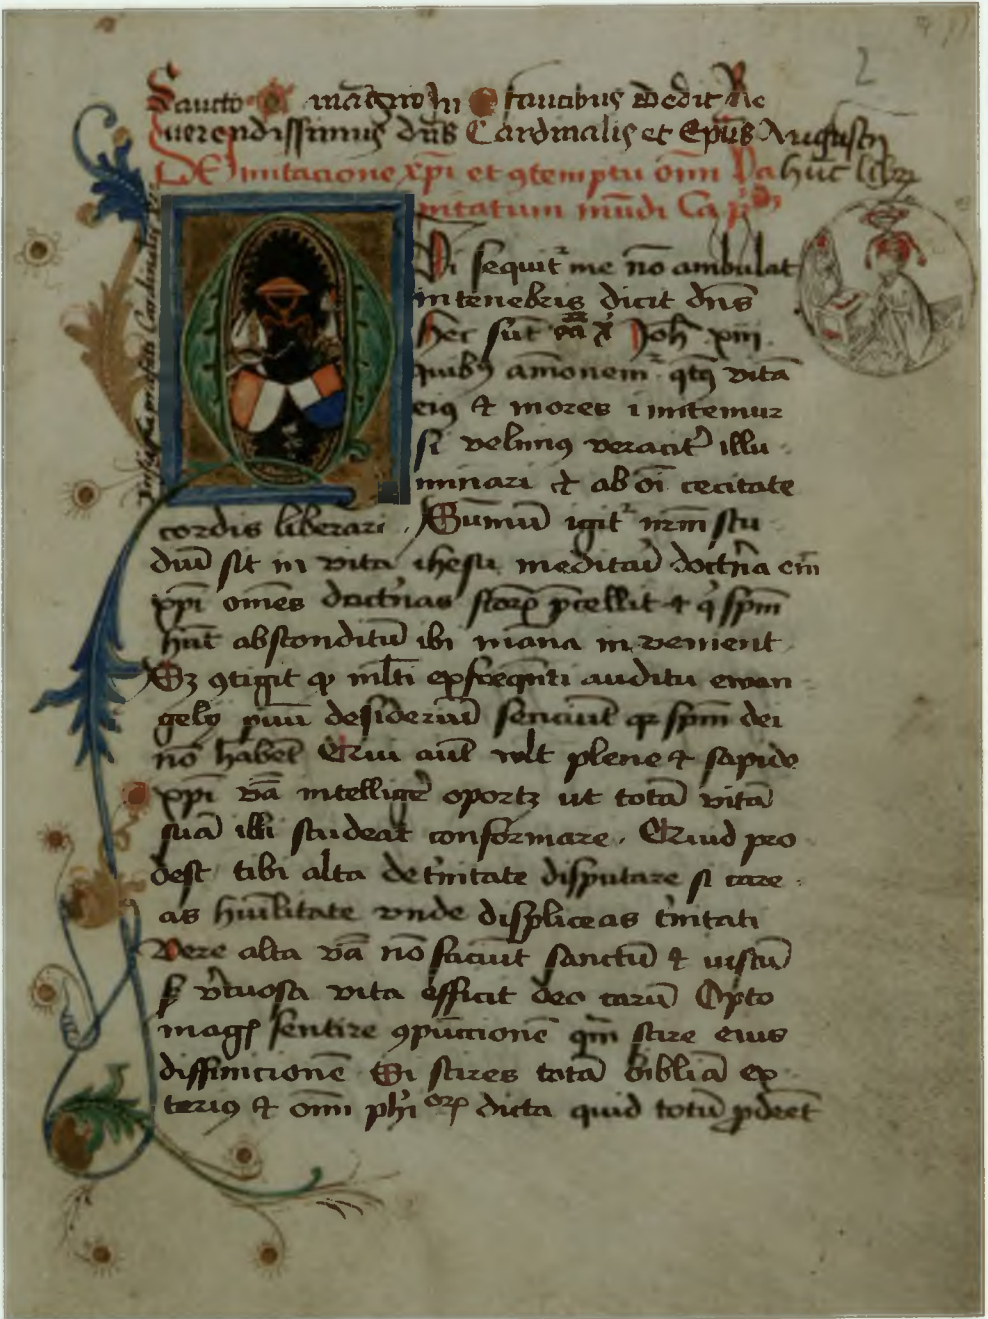 2
Sancto magno In faucibus Dedit Re
uerendissimus dns Cardinalis et Epus Augusten
hūc librū
De Imitacione xpi et ꝯtemptu om̄i Va
nitatum mūdi Ca pm
Insignia prefati Cardinalis
Qi sequit̄ me nō ambulat
in tenebris dicit dn̄s
hec sūt v̄ba x̄ Joh̄ . xiii
quibꝰ amonem̄ . qtꝫ vitā
eiꝰ & mores imitemur
si velimꝰ veracit̄ illu
minari & ab oī cecitate
cordis liberari . Sūmū igit̄ nr̄m stu
diū sit in vita ihesu meditari doct̄na em̄
xp̄i omēs doct̄nas sc̄orꝝ p̄cellit & q̄ sp̄m
hūt absconditū ibi māna invenient
Sꝫ ꝯtigit ꝙ ml̄ti ex freqn̄ti auditu ewan
gelij pvū desideriū senciūt qꝛ sp̄m dei
nō habēt Qui aūt vlt plene & sapide
xp̄i v̄ba intellige̅ oportꝫ ut totā vitā
suā illi studeat conformare . Quid pro
dest tibi alta de t̄nitate disputare si care
as hūilitate vnde displiceas t̄nitati
Vere alta v̄ba nō faciūt sanctū & iustū
sꝫ v̄tuosa vita efficit deo carū Opto
magꝭ sentire ꝯpūccionē qm̄ scire eius
diffinicionē Si scires totā bibliā ex
teriꝰ & om̄i ph̄iorꝝ dicta quid totū ꝓdeēt